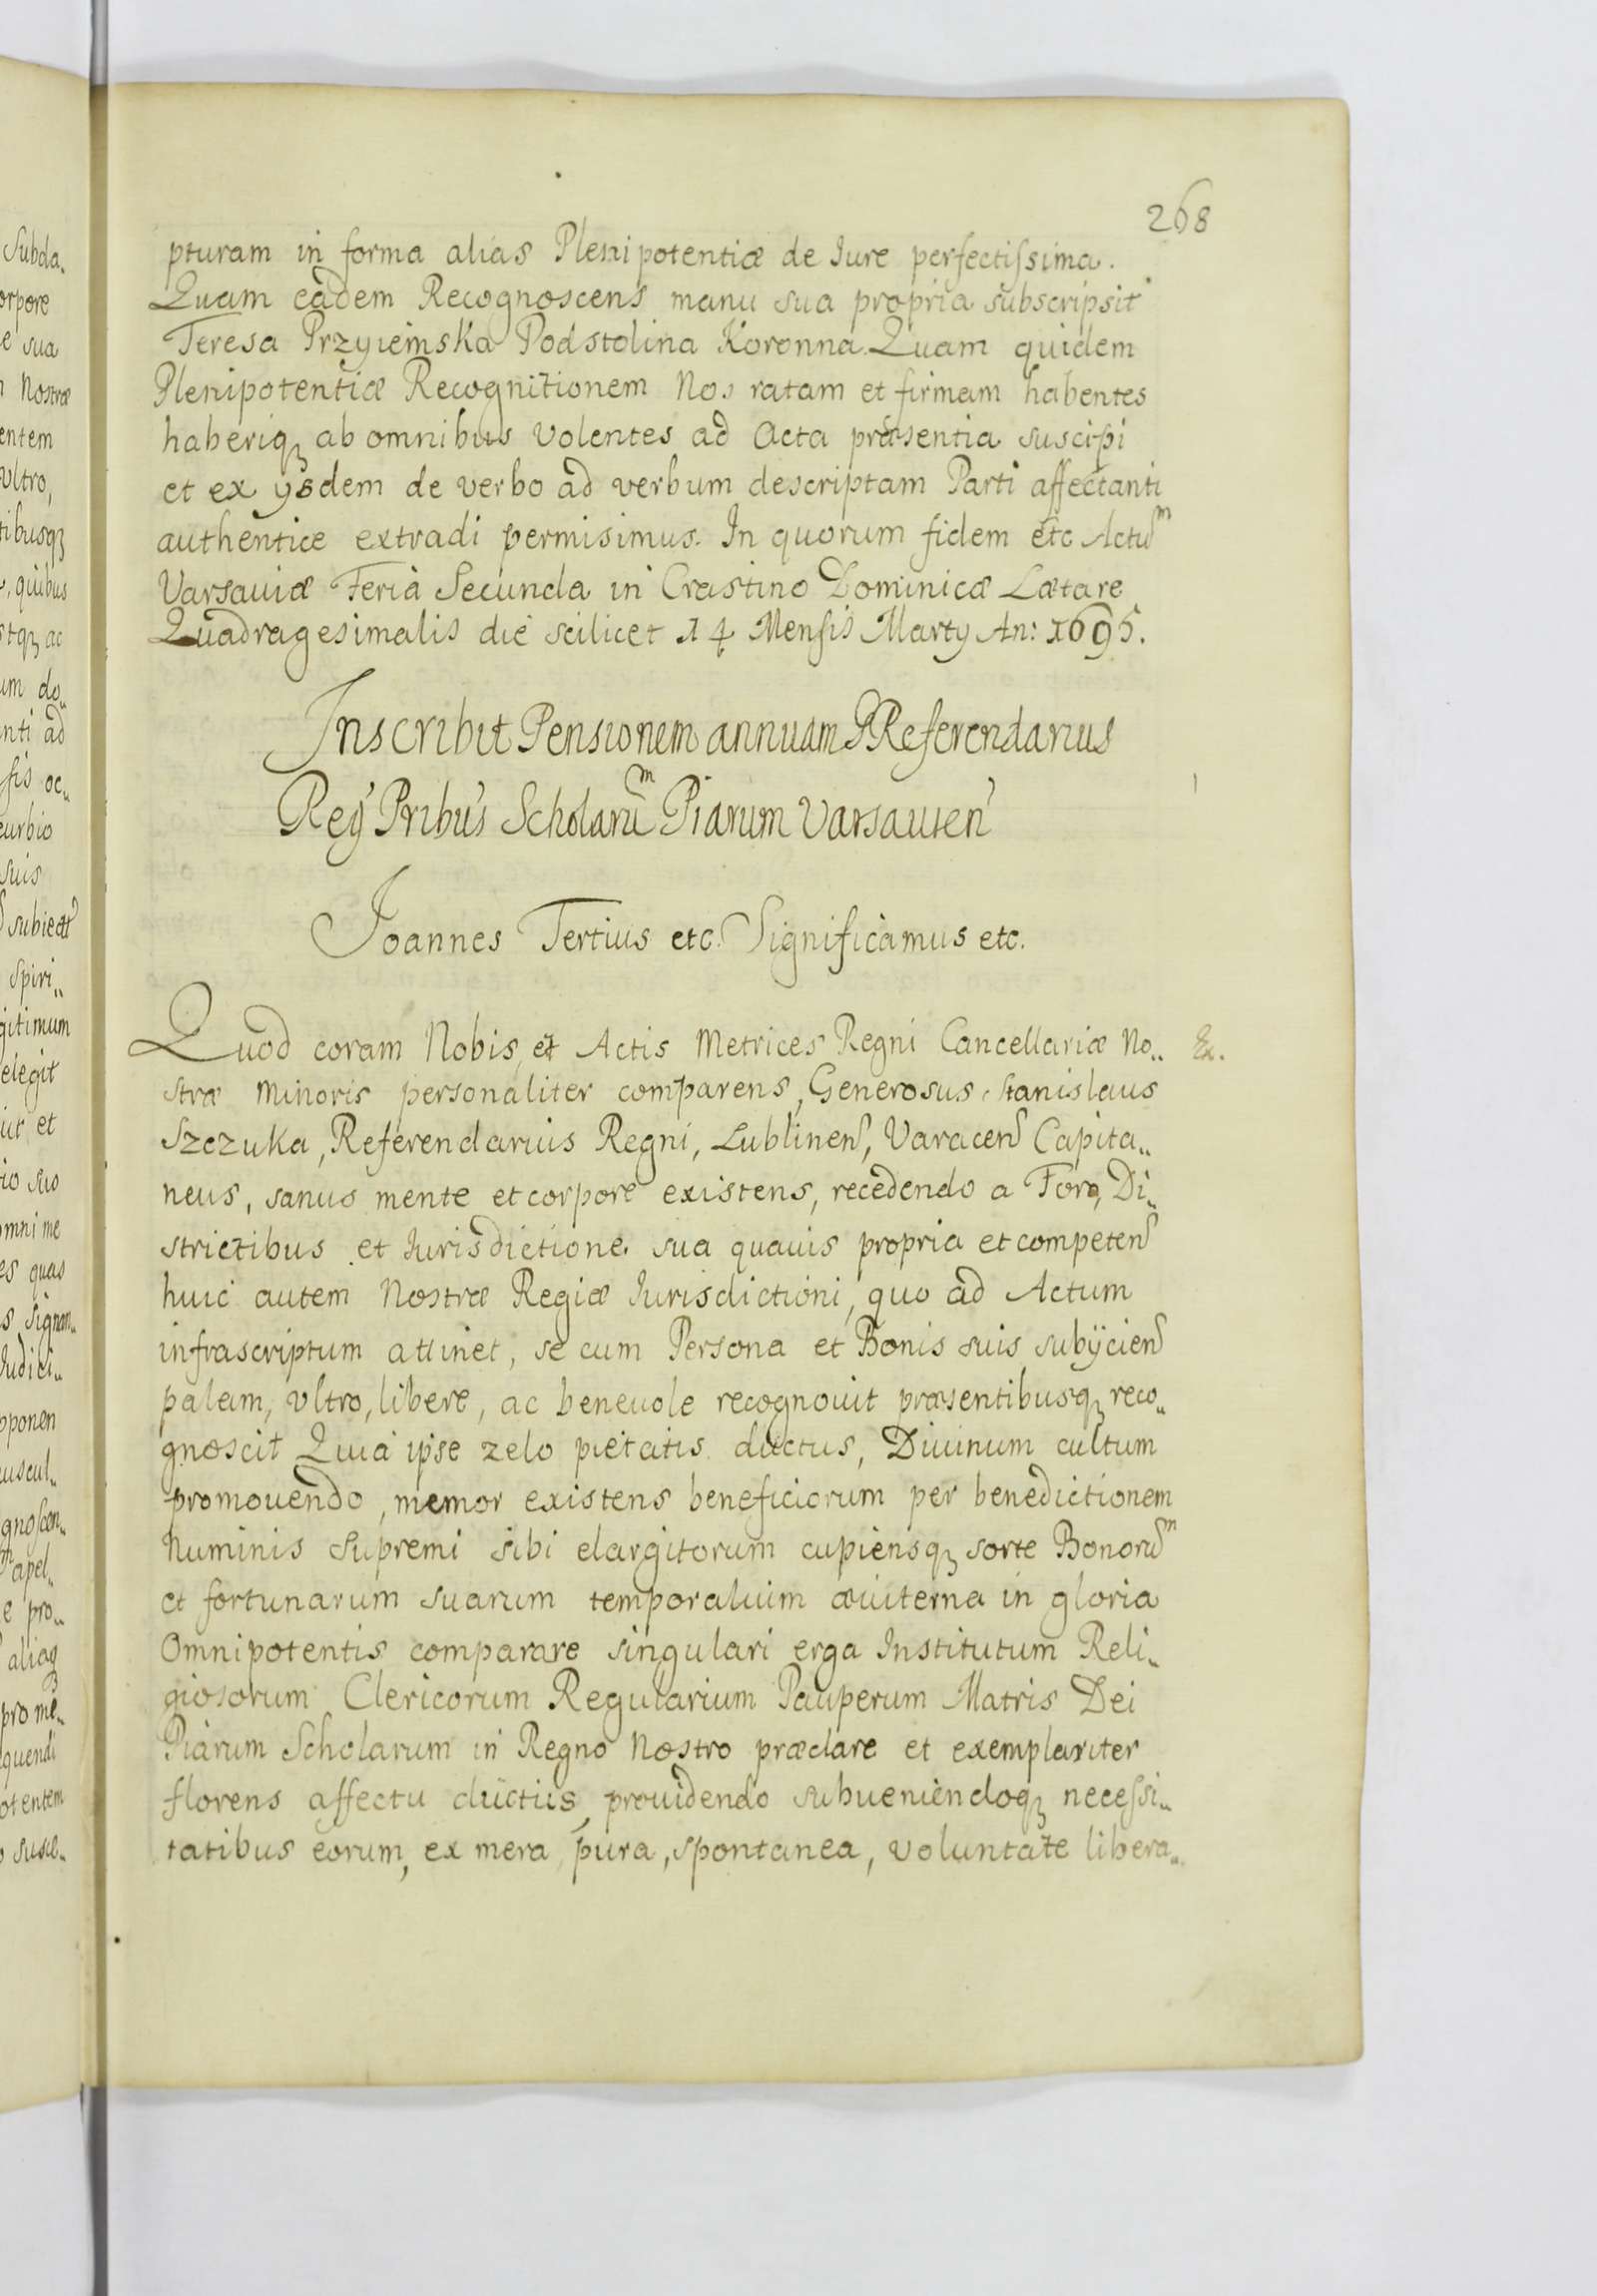 268
pturam in forma alias Plenipotentiæ de Iure perfectissima.
Quam eadem Recognoscens manu sua propria subscripsit
Teresa Przyiemska Podstolina Koronna. Quam quidem
Plenipotentiæ Recognitionem Nos ratam et firmam habentes
haberiq₃ ab omnibus volentes ad Acta præsentia suscipi
et ex ysdem de verbo ad verbum descriptam Parti affectanti
authentice extradi permisimus. In quorum fidem etc Actũᵐ
Varsauiæ Feria Secunda in Crastino Dominicæ Lætare
Quadragesimalis die scilicet 14 Mensis Marty An: 1695.
Inscribit Pensionem annuam G Referendarius
Regⁱ Pribus Scholarũᵐ Piarum Varsauien̄
Joannes Tertius etc. Significamus etc.
Quod coram Nobis, et Actis Metrices Regni Cancellariæ No„
stræ Minoris personaliter comparens, Generosus Stanislaus
Szczuka, Referendarius Regni, Lublinen̄, Varacen̄ Capita„
neus, sanus mente et corpore existens, recedendo a Foro, Di„
strictibus et Iurisdictione sua quauis propria et competen̄
huic autem Nostræ Regiæ Iurisdictioni, quo ad Actum
infrascriptum attinet, se cum Persona et Bonis suis subÿcien̄
palam, vltro, libere, ac beneuole recognouit præsentibusq₃ reco„
gnoscit Quia ipse zelo pietatis ductus, Diuinum cultum
promouendo, memor existens beneficiorum per benedictionem
Numinis Supremi sibi elargitorum cupiensq₃ sorte Bonorũᵐ
et fortunarum suarum temporalium æuiterna in gloria
Omnipotentis comparare singulari erga Institutum Reli„
giosorum Clericorum Regularium Pauperum Matris Dei
Piarum Scholarum in Regno Nostro præclare et exemplariter
florens affectu ductus, prouidendo subueniendoq₃ necessi„
tatibus eorum, ex mera, pura, spontanea, voluntate libera„